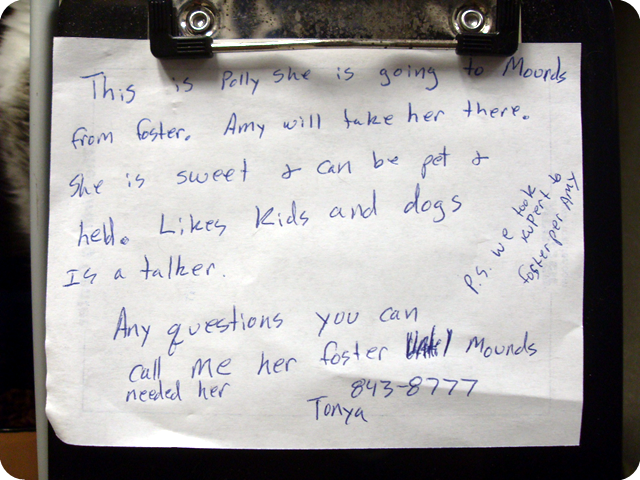 This is Polly she is going to Mounds
from foster. Amy will take her there.
She is sweet & can be pet &
held. Likes Kids and dogs
Is a talker.
P.S. we took
rupert to
foster per Amy
Any questions you can
call me her foster until Mounds
needed her
843-8777
Tonya